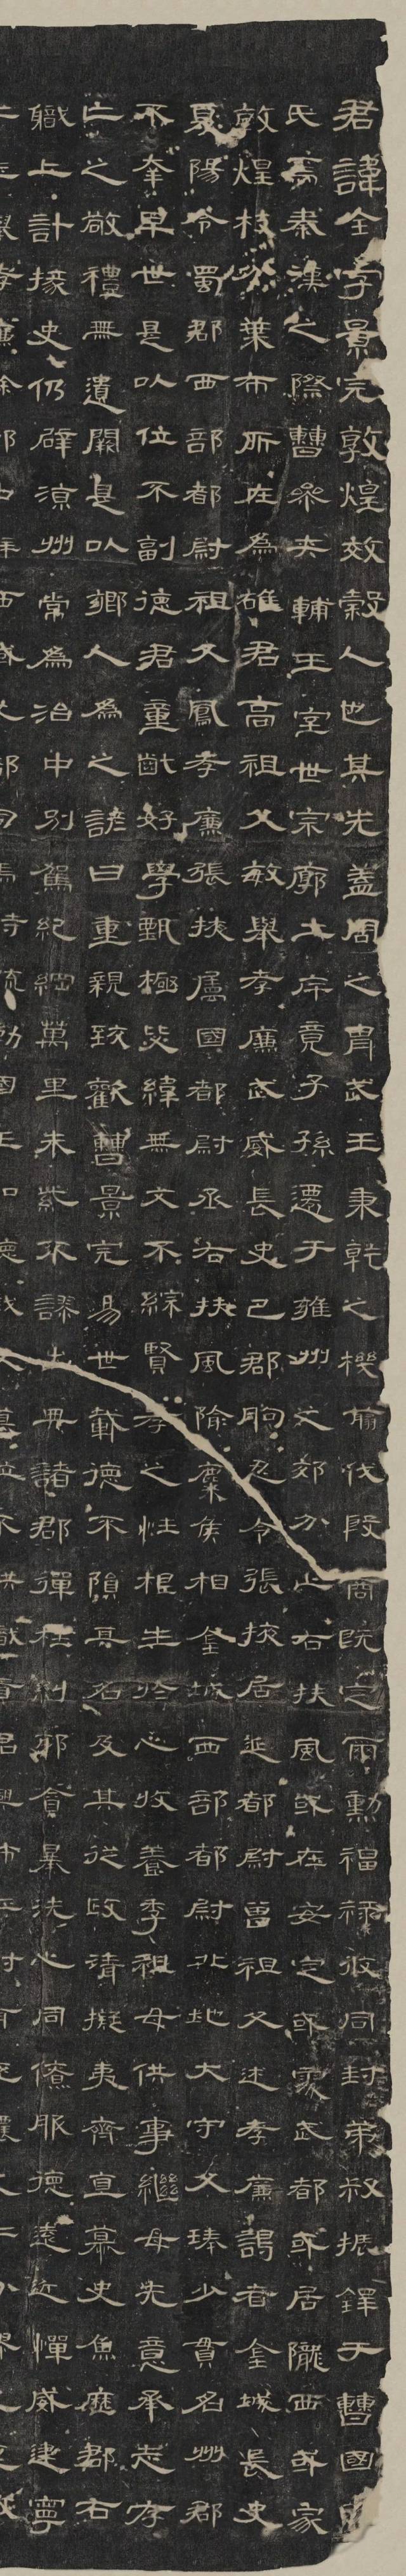 君諱全字景完敦煌效穀人也其先蓋周之胄武王秉乾之機翦伐殷商既定爾勳福祿攸同封弟叔振鐸于曹國因
氏焉秦漢之際曹參夾輔王室世宗廓土斥竟子孫遷于雍州之郊分止右扶風或在安定或處武都或居隴西或家
敦煌枝分葉布所在為雄君高祖父敏舉孝廉武威長史巴郡朐忍令張掖居延都尉曾祖父述孝廉謁者金城長史
夏陽令蜀郡西部都尉祖父鳳孝廉張掖屬國都尉丞右扶風隃麋侯相金城西部都尉北地大守父琫少貫名州郡
不幸早世是以位不副德君童齔好學甄極毖緯無文不綜賢孝之性根生於心收養季祖母供事繼母先意承志存
亡之敬禮無遺闕是以鄉人為之諺曰重親致歡曹景完易世載德不隕其名及其從政清擬夷齊直慕史魚歷郡右
職上計掾史仍辟涼州常為治中別駕紀綱萬里朱紫不謬出典諸郡彈枉糾邪貪暴洗心同僚服德遠近憚威建寧